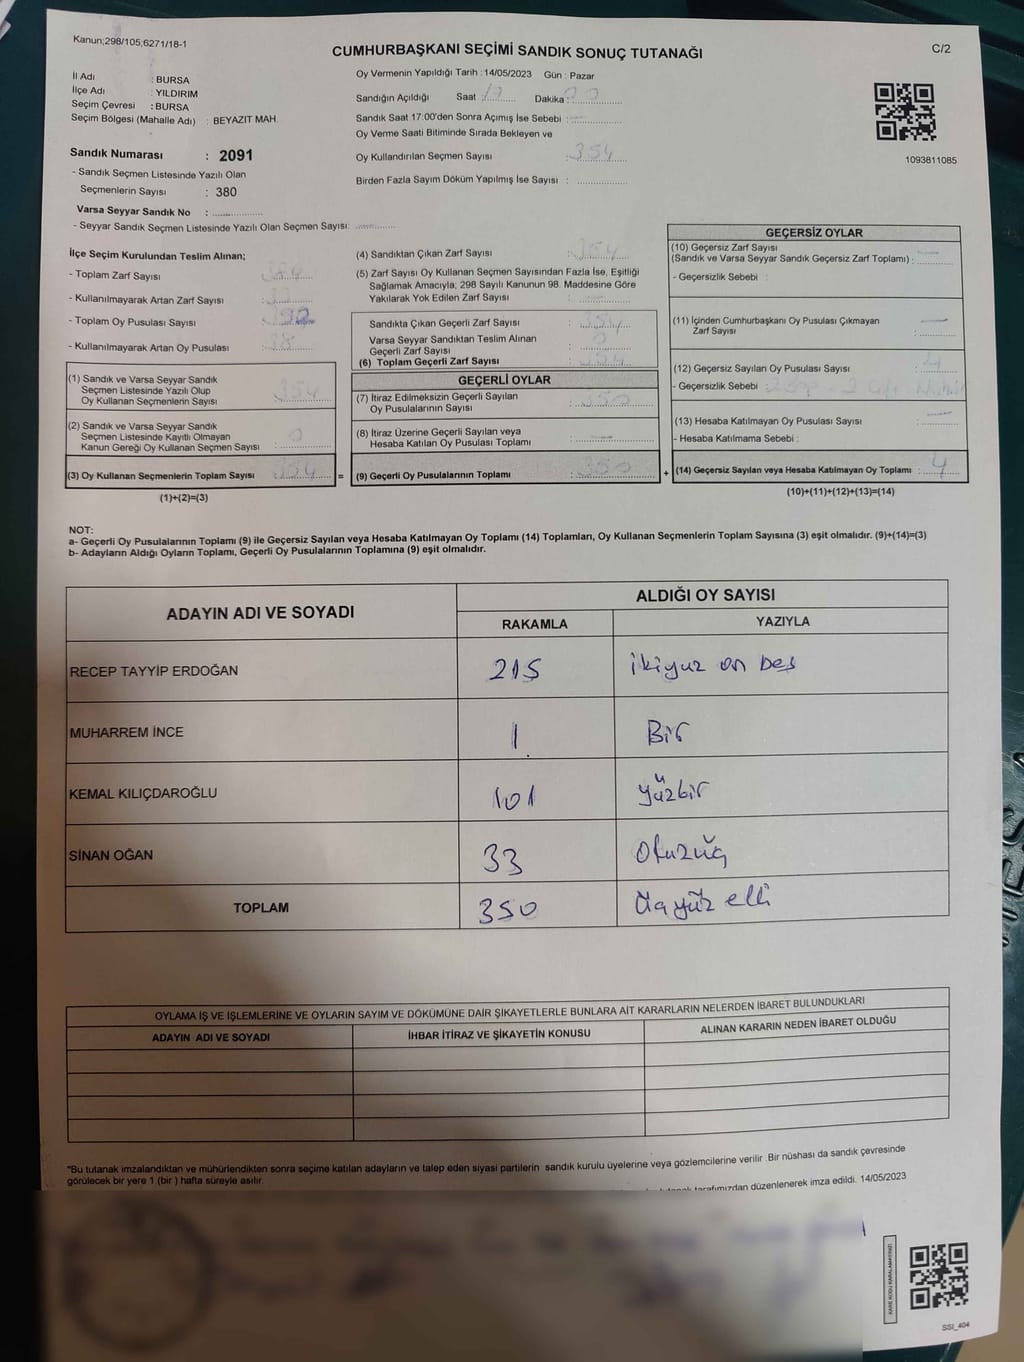 Kanun;298/105;6271/18-1
CUMHURBAŞKANI SEÇİMİ SANDIK SONUÇ TUTANAĞI
C/2
İl Adı : BURSA
İlçe Adı : YILDIRIM
Seçim Çevresi : BURSA
Seçim Bölgesi (Mahalle Adı) : BEYAZIT MAH.
Sandık Numarası : 2091
- Sandık Seçmen Listesinde Yazılı Olan
Seçmenlerin Sayısı : 380
Varsa Seyyar Sandık No :
- Seyyar Sandık Seçmen Listesinde Yazılı Olan Seçmen Sayısı:
Oy Vermenin Yapıldığı Tarih : 14/05/2023 Gün : Pazar
Sandığın Açıldığı Saat : Dakika :
Sandık Saat 17:00'den Sonra Açımış İse Sebebi :
Oy Verme Saati Bitiminde Sırada Bekleyen ve
Oy Kullandırılan Seçmen Sayısı : 354
Birden Fazla Sayım Döküm Yapılmış İse Sayısı :
1093811085
İlçe Seçim Kurulundan Teslim Alınan;
- Toplam Zarf Sayısı
- Kullanılmayarak Artan Zarf Sayısı
- Toplam Oy Pusulası Sayısı
- Kullanılmayarak Artan Oy Pusulası
(1) Sandık ve Varsa Seyyar Sandık
Seçmen Listesinde Yazılı Olup
Oy Kullanan Seçmenlerin Sayısı : 354
(2) Sandık ve Varsa Seyyar Sandık
Seçmen Listesinde Kayıtlı Olmayan
Kanun Gereği Oy Kullanan Seçmen Sayısı : 0
(3) Oy Kullanan Seçmenlerin Toplam Sayısı : 354
(1)+(2)=(3)
(4) Sandıktan Çıkan Zarf Sayısı : 354
(5) Zarf Sayısı Oy Kullanan Seçmen Sayısından Fazla İse, Eşitliği
Sağlamak Amacıyla; 298 Sayılı Kanunun 98. Maddesine Göre
Yakılarak Yok Edilen Zarf Sayısı :
Sandıkta Çıkan Geçerli Zarf Sayısı : 354
Varsa Seyyar Sandıktan Teslim Alınan
Geçerli Zarf Sayısı : 0
(6) Toplam Geçerli Zarf Sayısı : 354
GEÇERLİ OYLAR
(7) İtiraz Edilmeksizin Geçerli Sayılan
Oy Pusulalarının Sayısı : 350
(8) İtiraz Üzerine Geçerli Sayılan veya
Hesaba Katılan Oy Pusulası Toplamı :
= (9) Geçerli Oy Pusulalarının Toplamı : 350
GEÇERSİZ OYLAR
(10) Geçersiz Zarf Sayısı
(Sandık ve Varsa Seyyar Sandık Geçersiz Zarf Toplamı) :
- Geçersizlik Sebebi :
(11) İçinden Cumhurbaşkanı Oy Pusulası Çıkmayan
Zarf Sayısı :
(12) Geçersiz Sayılan Oy Pusulası Sayısı : 4
- Geçersizlik Sebebi :
(13) Hesaba Katılmayan Oy Pusulası Sayısı :
- Hesaba Katılmama Sebebi :
+ (14) Geçersiz Sayılan veya Hesaba Katılmayan Oy Toplamı : 4
(10)+(11)+(12)+(13)=(14)
NOT:
a- Geçerli Oy Pusulalarının Toplamı (9) ile Geçersiz Sayılan veya Hesaba Katılmayan Oy Toplamı (14) Toplamları, Oy Kullanan Seçmenlerin Toplam Sayısına (3) eşit olmalıdır. (9)+(14)=(3)
b- Adayların Aldığı Oyların Toplamı, Geçerli Oy Pusulalarının Toplamına (9) eşit olmalıdır.
ADAYIN ADI VE SOYADI
ALDIĞI OY SAYISI
RAKAMLA YAZIYLA
RECEP TAYYİP ERDOĞAN 215 ikiyuz on beş
MUHARREM İNCE 1 Bir
KEMAL KILIÇDAROĞLU 101 yüzbir
SİNAN OĞAN 33 Otuzüç
TOPLAM 350 Üçyüz elli
OYLAMA İŞ VE İŞLEMLERİNE VE OYLARIN SAYIM VE DÖKÜMÜNE DAİR ŞİKAYETLERLE BUNLARA AİT KARARLARIN NELERDEN İBARET BULUNDUKLARI
ADAYIN ADI VE SOYADI İHBAR İTİRAZ VE ŞİKAYETİN KONUSU ALINAN KARARIN NEDEN İBARET OLDUĞU
*Bu tutanak imzalandıktan ve mühürlendikten sonra seçime katılan adayların ve talep eden siyasi partilerin sandık kurulu üyelerine veya gözlemcilerine verilir. Bir nüshası da sandık çevresinde
görülecek bir yere 1 (bir) hafta süreyle asılır.
tarafımızdan düzenlenerek imza edildi. 14/05/2023
SSI_404